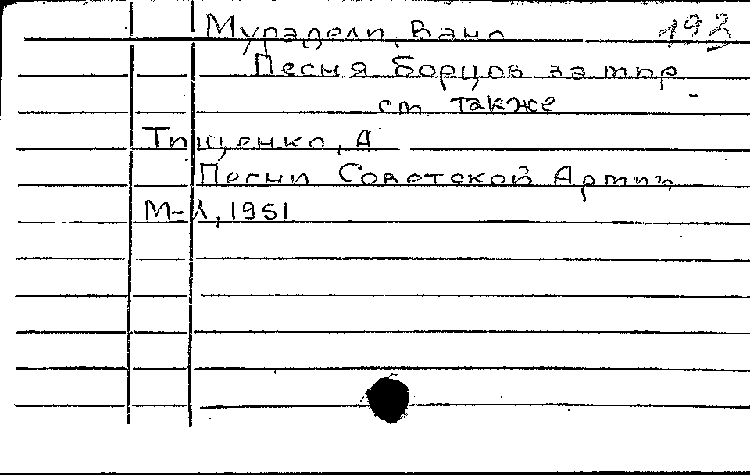 Мурадели, Вано 193
Песня борцов за мир
см также
Тищенко, А
Песни Советской Армии
М-Л, 1951